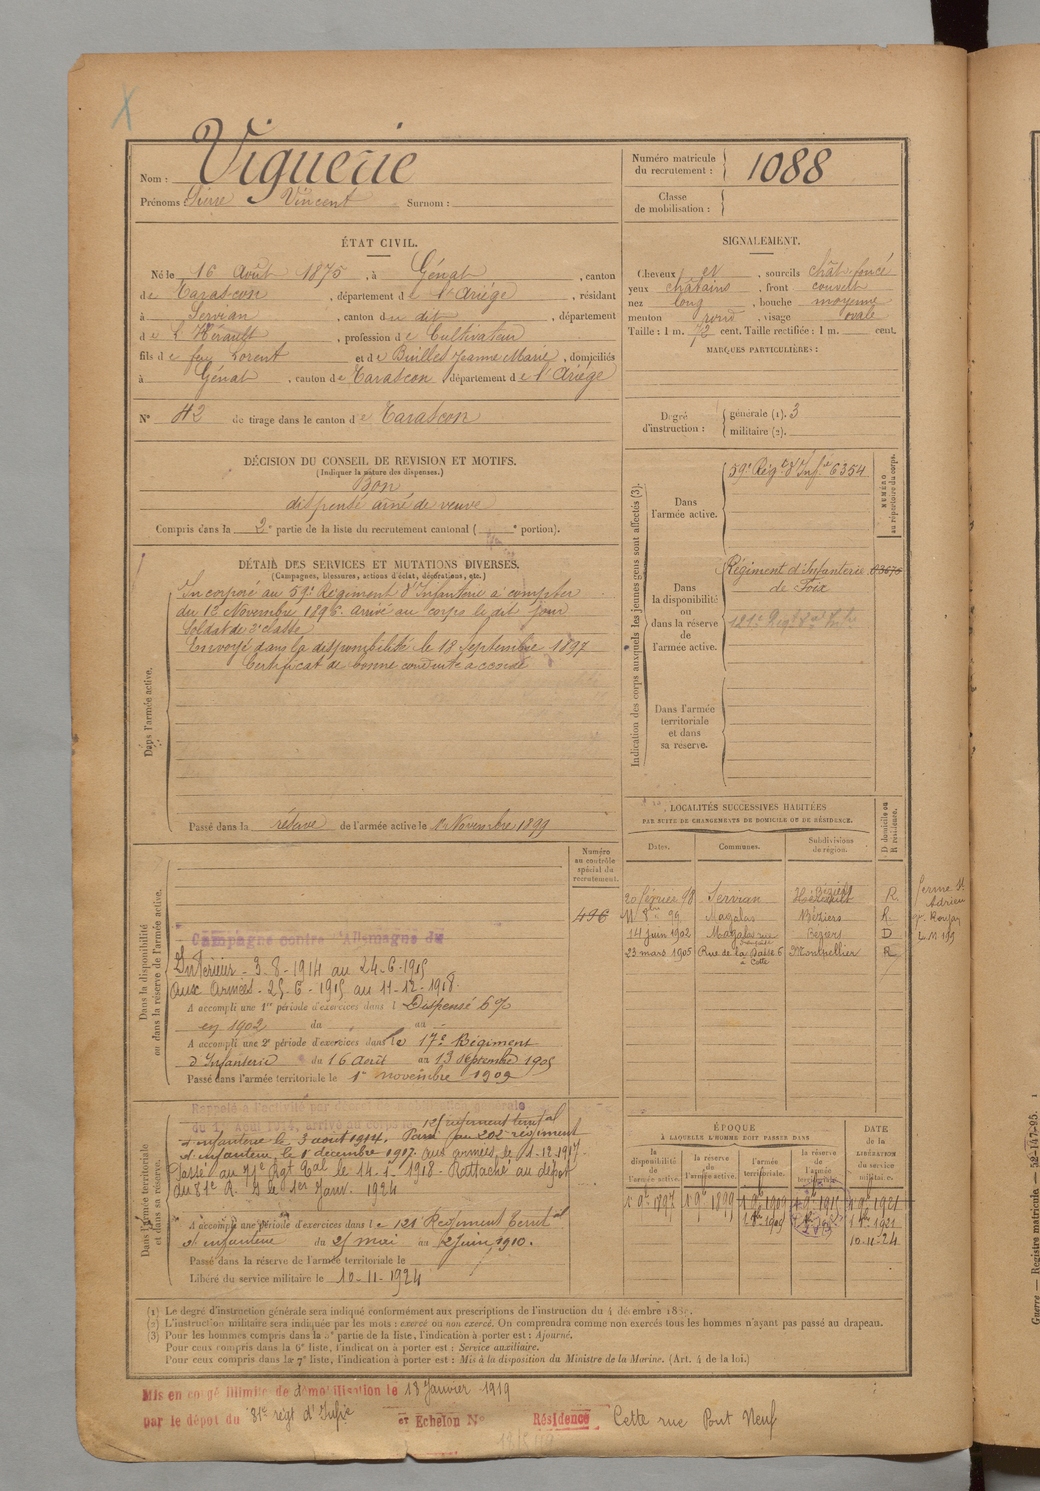 Nom : Viguerie
Prénoms : Pierre Vincent Surnom :
Numéro matricule du recrutement : 1088
Classe de mobilisation :
ÉTAT CIVIL.
Né le 16 Août 1875, à Génat, canton
de Tarascon, département de l'Ariège, résidant
à Servian, canton du dit, département
de L'Hérault, profession de Cultivateur
fils de feu Lorent et de Builles Jeanne Marie, domiciliés
à Génat, canton de Tarascon, département de l'Ariège
N° 42 de tirage dans le canton de Tarascon
SIGNALEMENT.
Cheveux et, sourcils chât. foncé
yeux châtains, front couvert
nez long, bouche moyenne
menton rond, visage ovale
Taille : 1 m. 72 cent. Taille rectifiée : 1 m. cent.
MARQUES PARTICULIÈRES :
Degré d'instruction : générale (1). 3
militaire (2).
DÉCISION DU CONSEIL DE REVISION ET MOTIFS.
(Indiquer la nature des dispenses.)
Bon
dispensé aîné de veuve
Compris dans la 2e partie de la liste du recrutement cantonal ( e portion).
DÉTAIL DES SERVICES ET MUTATIONS DIVERSES.
(Campagnes, blessures, actions d'éclat, décorations, etc.)
Dans l'armée active.
Incorporé au 59e Régiment d'Infanterie à compter
du 12 Novembre 1896. Arrivé au corps le dit jour
Soldat de 2e classe
Envoyé dans la disponibilité le 18 Septembre 1897
Certificat de bonne conduite accordé
Passé dans la réserve de l'armée active le 1er Novembre 1899
Indication des corps auxquels les jeunes gens sont affectés (3).
NUMÉRO au répertoire du corps.
Dans l'armée active.
59e Régt d'Infie 6354
Dans la disponibilité ou dans la réserve de l'armée active.
Régiment d'Infanterie
de Foix
Dans l'armée territoriale et dans sa réserve.
LOCALITÉS SUCCESSIVES HABITÉES
PAR SUITE DE CHANGEMENTS DE DOMICILE OU DE RÉSIDENCE.
D domicile ou R résidence.
Dates. Communes. Subdivisions de région.
20 février 98 Servian Hérault Béziers R
11 8bre 99 Magalas Béziers R
14 juin 1902 Magalas rue Béziers D
23 mars 1905 Rue de la Passe 6 à Cette Montpellier R
ferme St
Adrien
Dans la disponibilité ou dans la réserve de l'armée active.
Numéro au contrôle spécial du recrutement.
496
Campagne contre l'Allemagne du
Intérieur - 3.8.1914 au 24.6.1915
Aux armées - 25.6.1915 au 11-12-1918.
A accompli une 1re période d'exercices dans l Dispensé 6%
en 1902 du au
A accompli une 2e période d'exercices dans le 17e Régiment
d'Infanterie du 16 août au 13 septembre 1905
Passé dans l'armée territoriale le 1er novembre 1909
Dans l'armée territoriale et dans sa réserve.
Rappelé à l'activité par décret de mobilisation générale
du 1er Août 1914, arrivé au corps le 121 régiment territal
d'infanterie le 3 août 1914. Passé au 202e régiment
d'infanterie le 1er décembre 1917. Aux armées le 1.12.1917.
Passé au 71e Rgt Tal le 14-1-1918. Rattaché au dépôt
du 81e R. I. le 1er Janv. 1924
A accompli une période d'exercices dans le 121 Régiment territal
d'infanterie du 25 mai au 2 Juin 1910.
Passé dans la réserve de l'armée territoriale le
Libéré du service militaire le 10-11-1924
ÉPOQUE
À LAQUELLE L'HOMME DOIT PASSER DANS
la disponibilité de l'armée active. la réserve de l'armée active. l'armée territoriale. la réserve de l'armée territoriale.
DATE de la LIBÉRATION du service militaire.
1 9bre 1897 1 9bre 1899 1 9bre 1909 1 9bre 1915 1 9bre 1921
10-11-24
(1) Le degré d'instruction générale sera indiqué conformément aux prescriptions de l'instruction du 4 décembre
(2) L'instruction militaire sera indiquée par les mots : exercé ou non exercé. On comprendra comme non exercés tous les hommes n'ayant pas passé au drapeau.
(3) Pour les hommes compris dans la 5e partie de la liste, l'indication à porter est : Ajourné.
Pour ceux compris dans la 6e liste, l'indication à porter est : Service auxiliaire.
Pour ceux compris dans la 7e liste, l'indication à porter est : Mis à la disposition du Ministre de la Marine. (Art. 4 de la loi.)
Mis en congé illimité de démobilisation le 13 Janvier 1919
par le dépôt du 81e régt d'Infie et Echelon N° Résidence Cette rue Pont Neuf
Guerre. — Registre matricule. — 52-147-95.